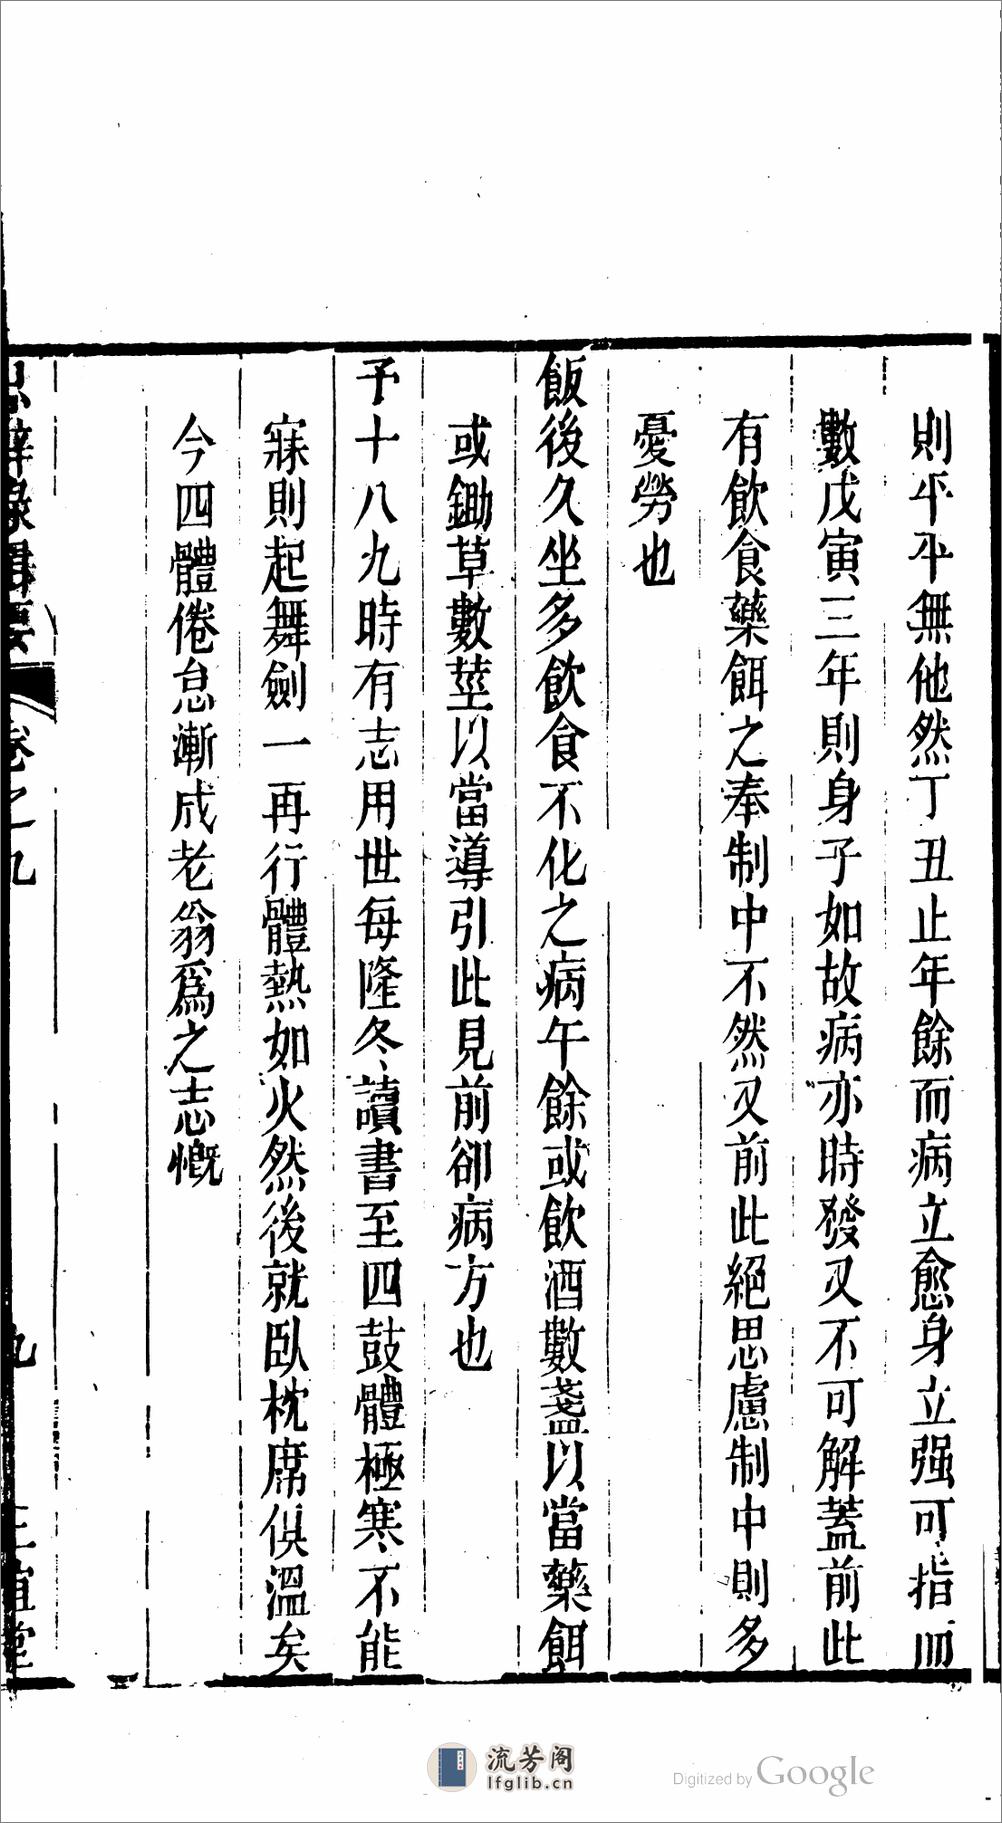 則平平無他然丁丑止年餘而病立愈身立强可指而
數戊寅三年則身子如故病亦時發又不可解蓋前此
有飲食藥餌之奉制中不然又前此絕思慮制中則多
憂勞也
飯後久坐多飲食不化之病午餘或飲酒數盞以當藥餌
或鋤草數莖以當導引此見前卻病方也
予十八九時有志用世每隆冬讀書至四鼓體極寒不能
寐則起舞劍一再行體熱如火然後就臥枕席俱溫矣
今四體倦怠漸成老翁爲之志慨
卷之九
九
流芳阁
lfglib.cn
Digitized by Google